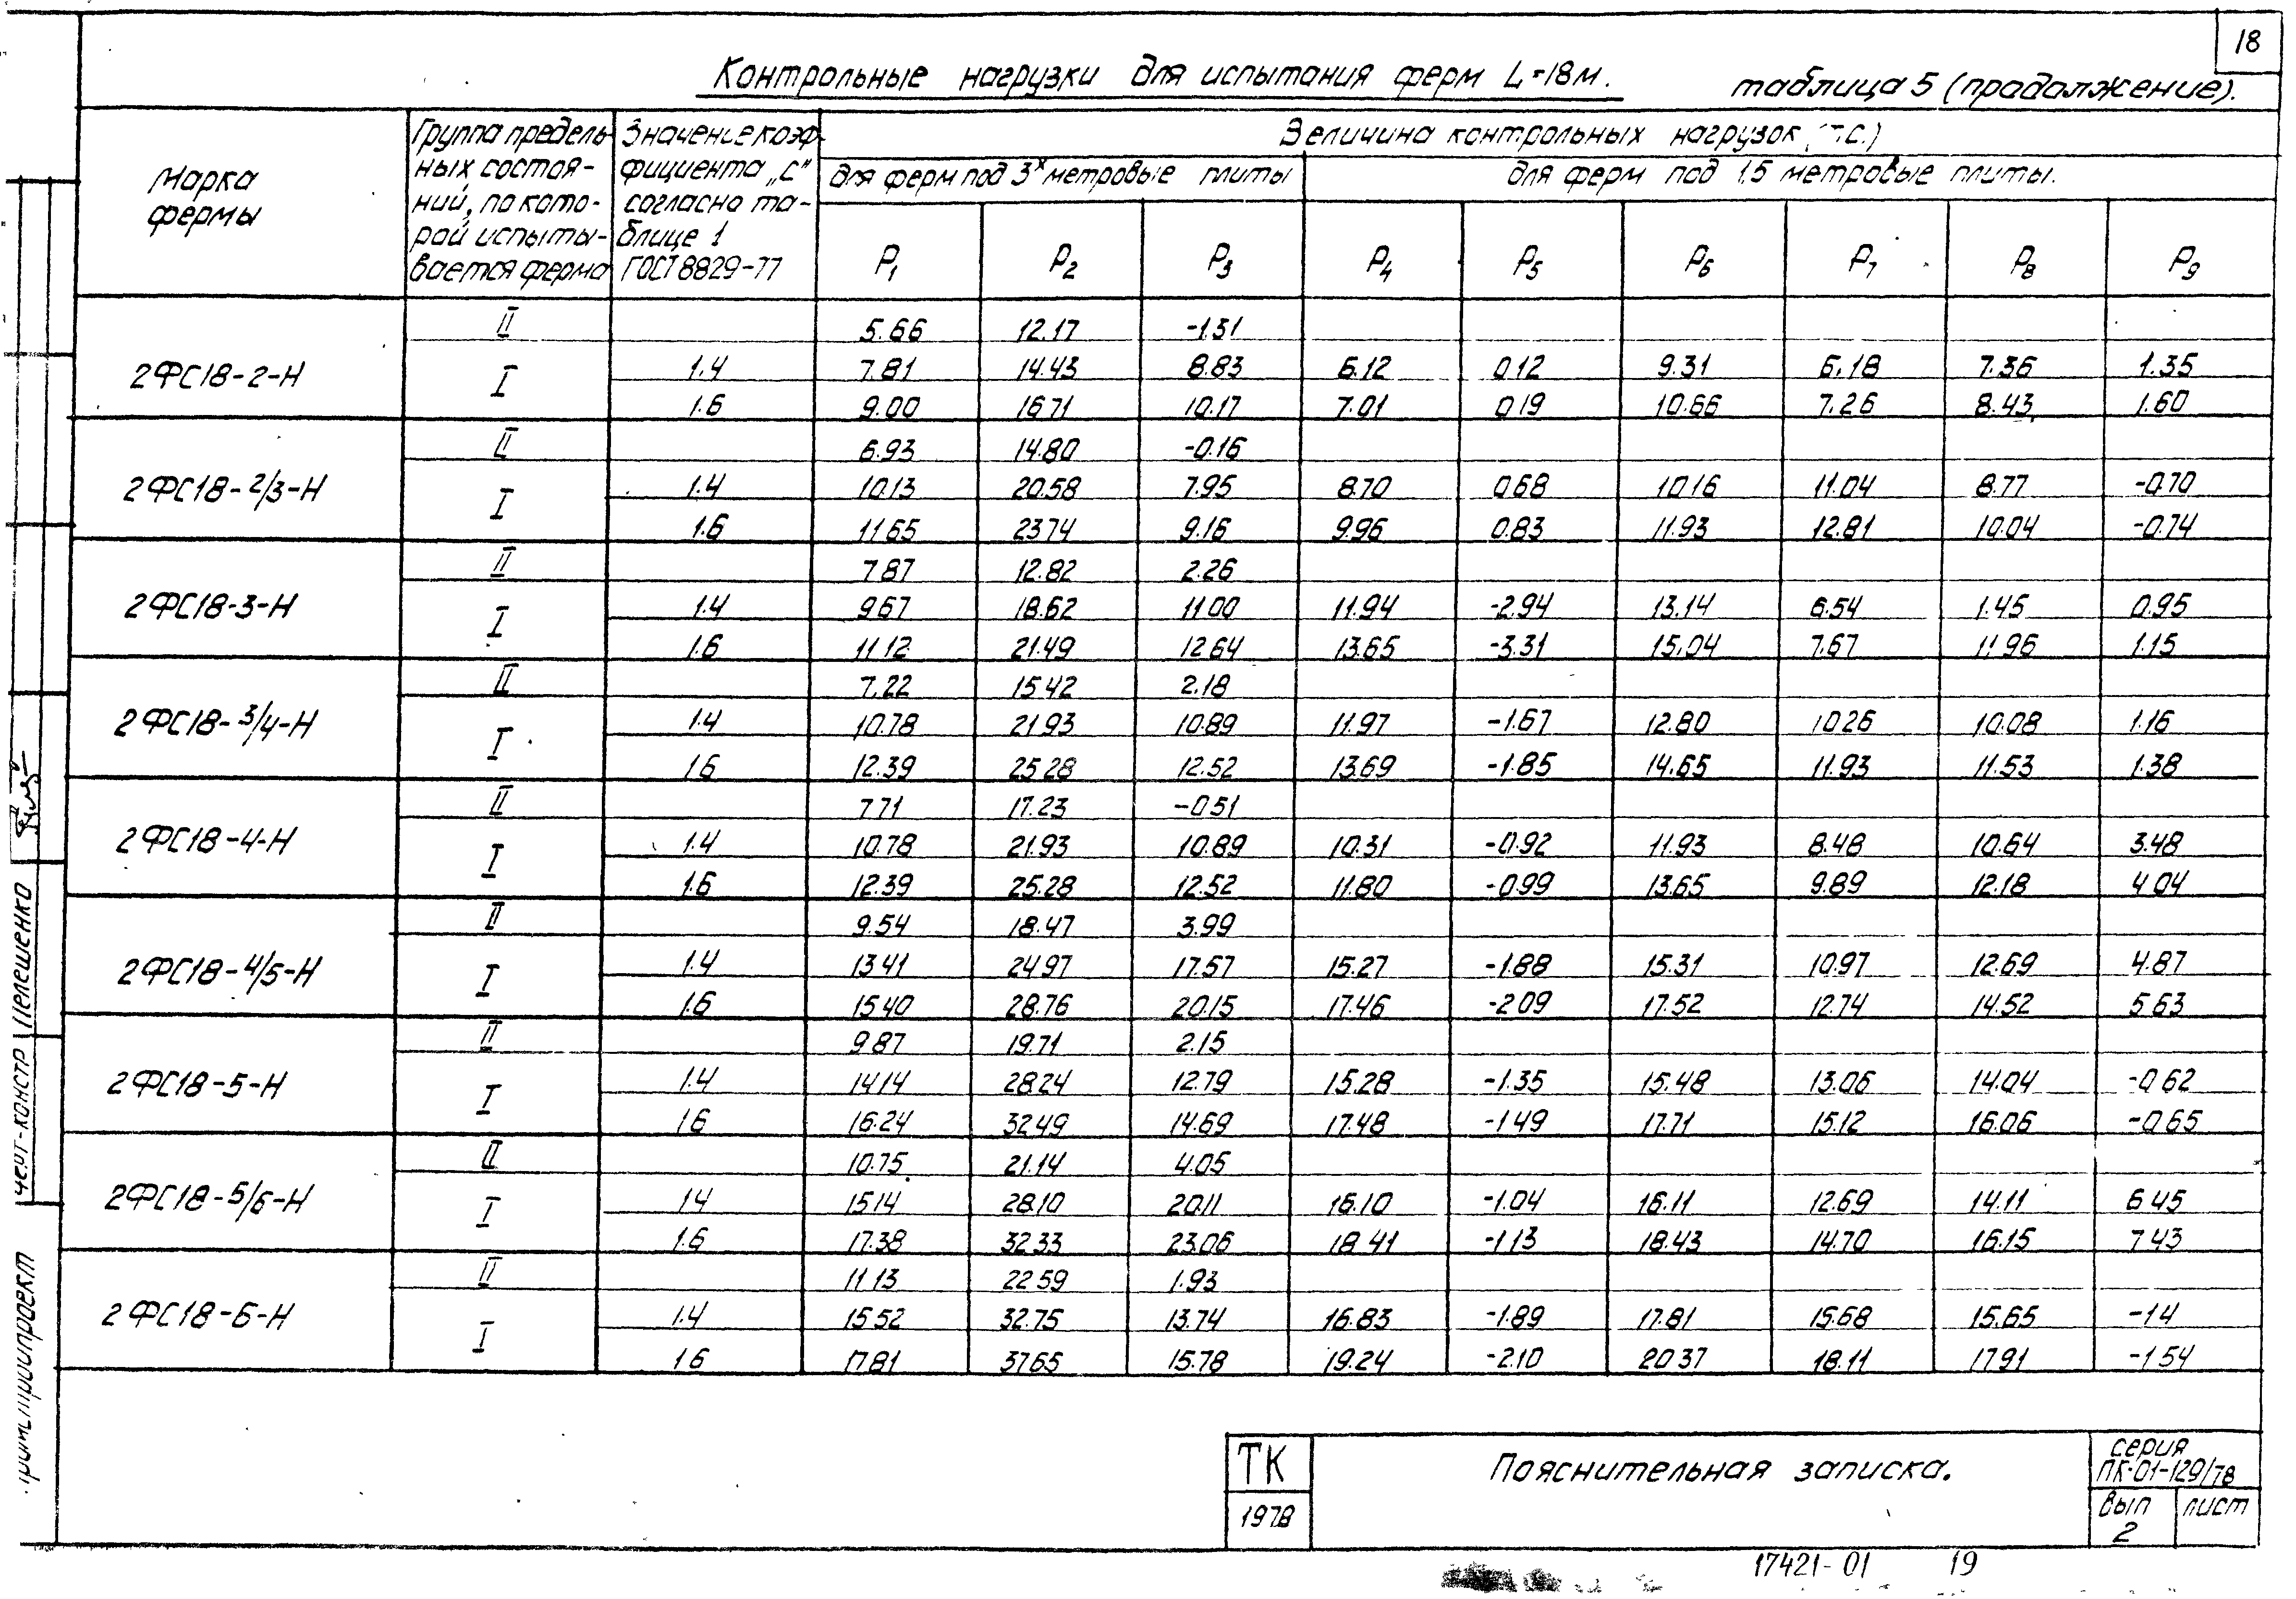 18
Контрольные нагрузки для испытания ферм L=18м.
таблица 5 (продолжение).
Марка фермы
Группа предельных состояний, по которой испытывается ферма
Значение коэффициента „С" согласно таблице 1 ГОСТ 8829-77
Величина контрольных нагрузок (т.с.)
для ферм под 3х метровые плиты
для ферм под 1.5 метровые плиты.
P1 P2 P3 P4 P5 P6 P7 P8 P9
2ФС18-2-Н
II 5.66 12.17 -1.31
I 1.4 7.81 14.43 8.83 6.12 0.12 9.31 6.18 7.36 1.35
1.6 9.00 16.71 10.17 7.01 0.19 10.66 7.26 8.43 1.60
2ФС18-2/3-Н
II 6.93 14.80 -0.16
I 1.4 10.13 20.58 7.95 8.70 0.68 10.16 11.04 8.77 -0.70
1.6 11.65 23.74 9.16 9.96 0.83 11.93 12.81 10.04 -0.74
2ФС18-3-Н
II 7.87 12.82 2.26
I 1.4 9.67 18.62 11.00 11.94 -2.94 13.14 6.54 1.45 0.95
1.6 11.12 21.49 12.64 13.65 -3.31 15.04 7.67 11.96 1.15
2ФС18-3/4-Н
II 7.22 15.42 2.18
I 1.4 10.78 21.93 10.89 11.97 -1.67 12.80 10.26 10.08 1.16
1.6 12.39 25.28 12.52 13.69 -1.85 14.65 11.93 11.53 1.38
2ФС18-4-Н
II 7.71 17.23 -0.51
I 1.4 10.78 21.93 10.89 10.31 -0.92 11.93 8.48 10.64 3.48
1.6 12.39 25.28 12.52 11.80 -0.99 13.65 9.89 12.18 4.04
2ФС18-4/5-Н
II 9.54 18.47 3.99
I 1.4 13.41 24.97 17.57 15.27 -1.88 15.31 10.97 12.69 4.87
1.6 15.40 28.76 20.15 17.46 -2.09 17.52 12.74 14.52 5.63
2ФС18-5-Н
II 9.87 19.71 2.15
I 1.4 14.14 28.24 12.79 15.28 -1.35 15.48 13.06 14.04 -0.62
1.6 16.24 32.49 14.69 17.48 -1.49 17.71 15.12 16.06 -0.65
2ФС18-5/6-Н
II 10.75 21.14 4.05
I 1.4 15.14 28.10 20.11 16.10 -1.04 16.11 12.69 14.11 6.45
1.6 17.38 32.33 23.06 18.41 -1.13 18.43 14.70 16.15 7.43
2ФС18-6-Н
II 11.13 22.59 1.93
I 1.4 15.52 32.75 13.74 16.83 -1.89 17.81 15.68 15.65 -1.4
1.6 17.81 37.65 15.78 19.24 -2.10 20.37 18.11 17.91 -1.54
Пелешенко
ТК
1978
Пояснительная записка.
серия
ПК-01-129/78
вып
2
лист
17421-01 19